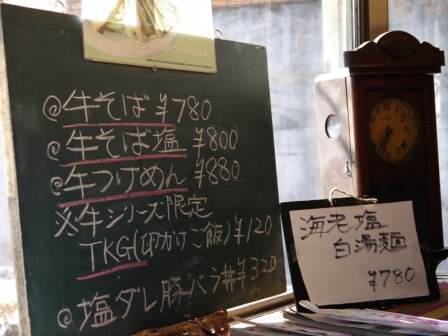 ◎牛そば ¥780
◎牛そば塩 ¥800
◎牛つけめん ¥880
※牛シリーズ限定
TKG(卵かけご飯) ¥120
◎塩ダレ豚バラ丼 ¥320
海老塩
白湯麺
¥780